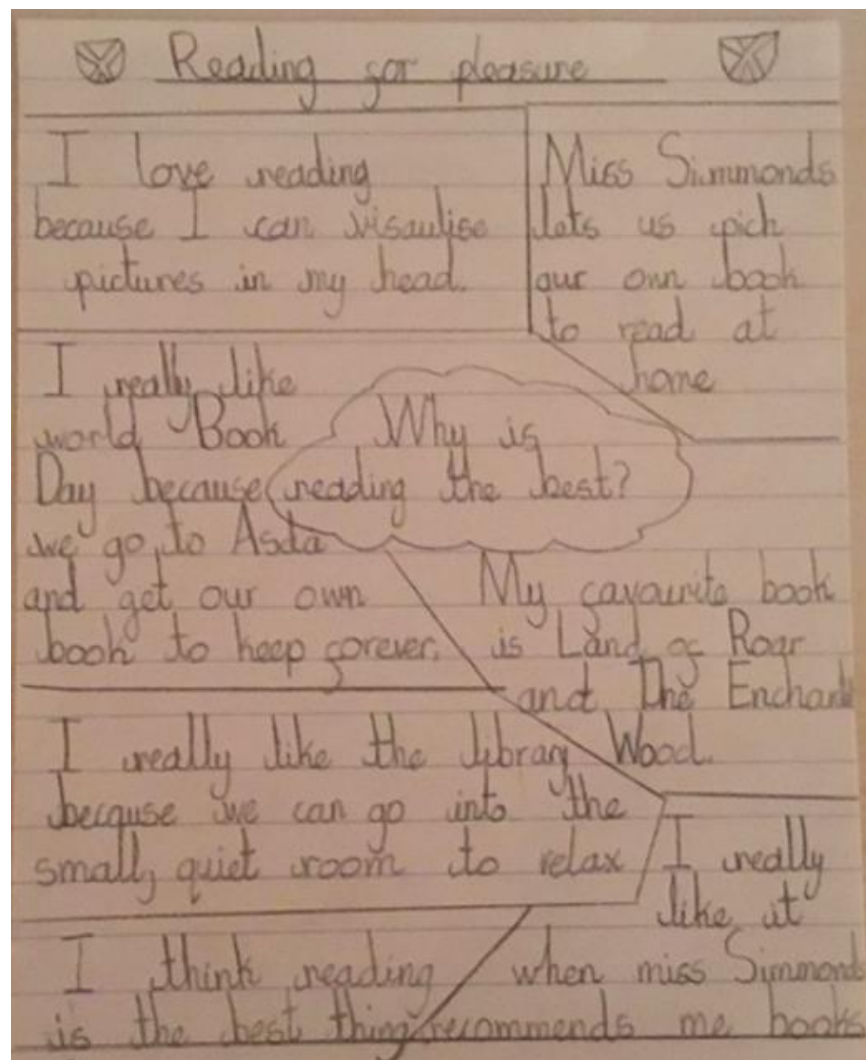 Reading for pleasure
I love reading
because I can visaulise
pictures in my head.
Miss Simmonds
lets us pick
our own book
to read at
home
I really like
world Book
Day because
we go to Asda
and get our own
book to keep forever.
Why is
reading the best?
My favourite book
is Land of Roar
and The Enchant
Wood.
I really like the library
because we can go into the
small, quiet room to relax
I really
like it
when miss Simmonds
recommends me books
I think reading
is the best thing